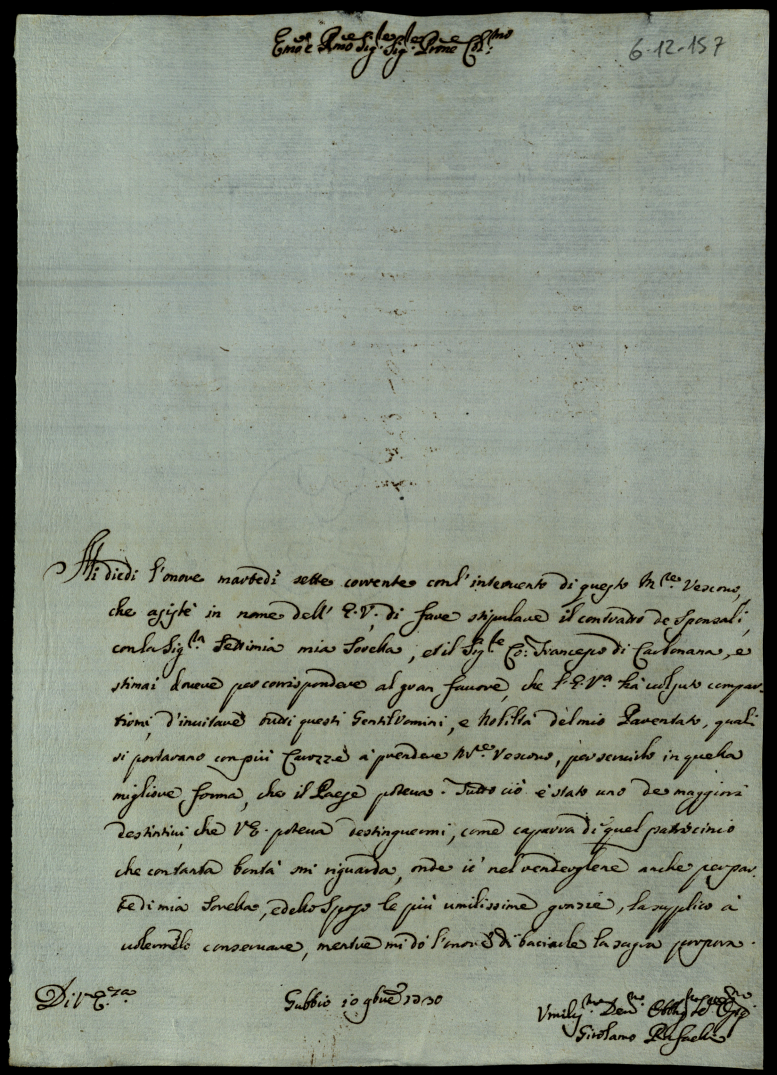 Em̃o e Rmõ Sig.re Sig.re Prone Col.mo
6-12-157
Mi diedi l'onore martedi sette corrente con l'intervento di questo M.re Vescovo,
che asistè in nome dell' E.V., di fare stipulare il contratto de Sponsali,
con la Sig.ra Settimia mia Sorella, et il Sig.re Co: Francesco di Carbonana, e
stimai dovere per corrispondere al gran favore, che l'E.Va hà voluto compar-
tirmi, d'invitare tutti questi GentilUomini, e Nobiltà del mio Parentato, quali
si portarano con più Carozze à prendere M.re Vescovo, per servirlo in quella
migliore forma, che il Paese poteva. Tutto ciò è stato uno de maggiori
destintivi, che V.E. poteva destinguermi, come caparra di quel patrocinio
che con tanta bontà mi riguarda, onde io nel rendergliene anche per par-
te di mia Sorella, e dello Sposo le più umilissime grazie, la supplico à
volermelo conservare, mentre mi dò l'onore di baciarle la sagra porpora.
Di V.E.za
Gubbio 10 9bre 1730
Umiliss.mo Dev.mo Obblig.mo
Girolamo Raffaelli